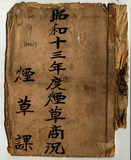 昭和十三年度煙草商況
煙草課